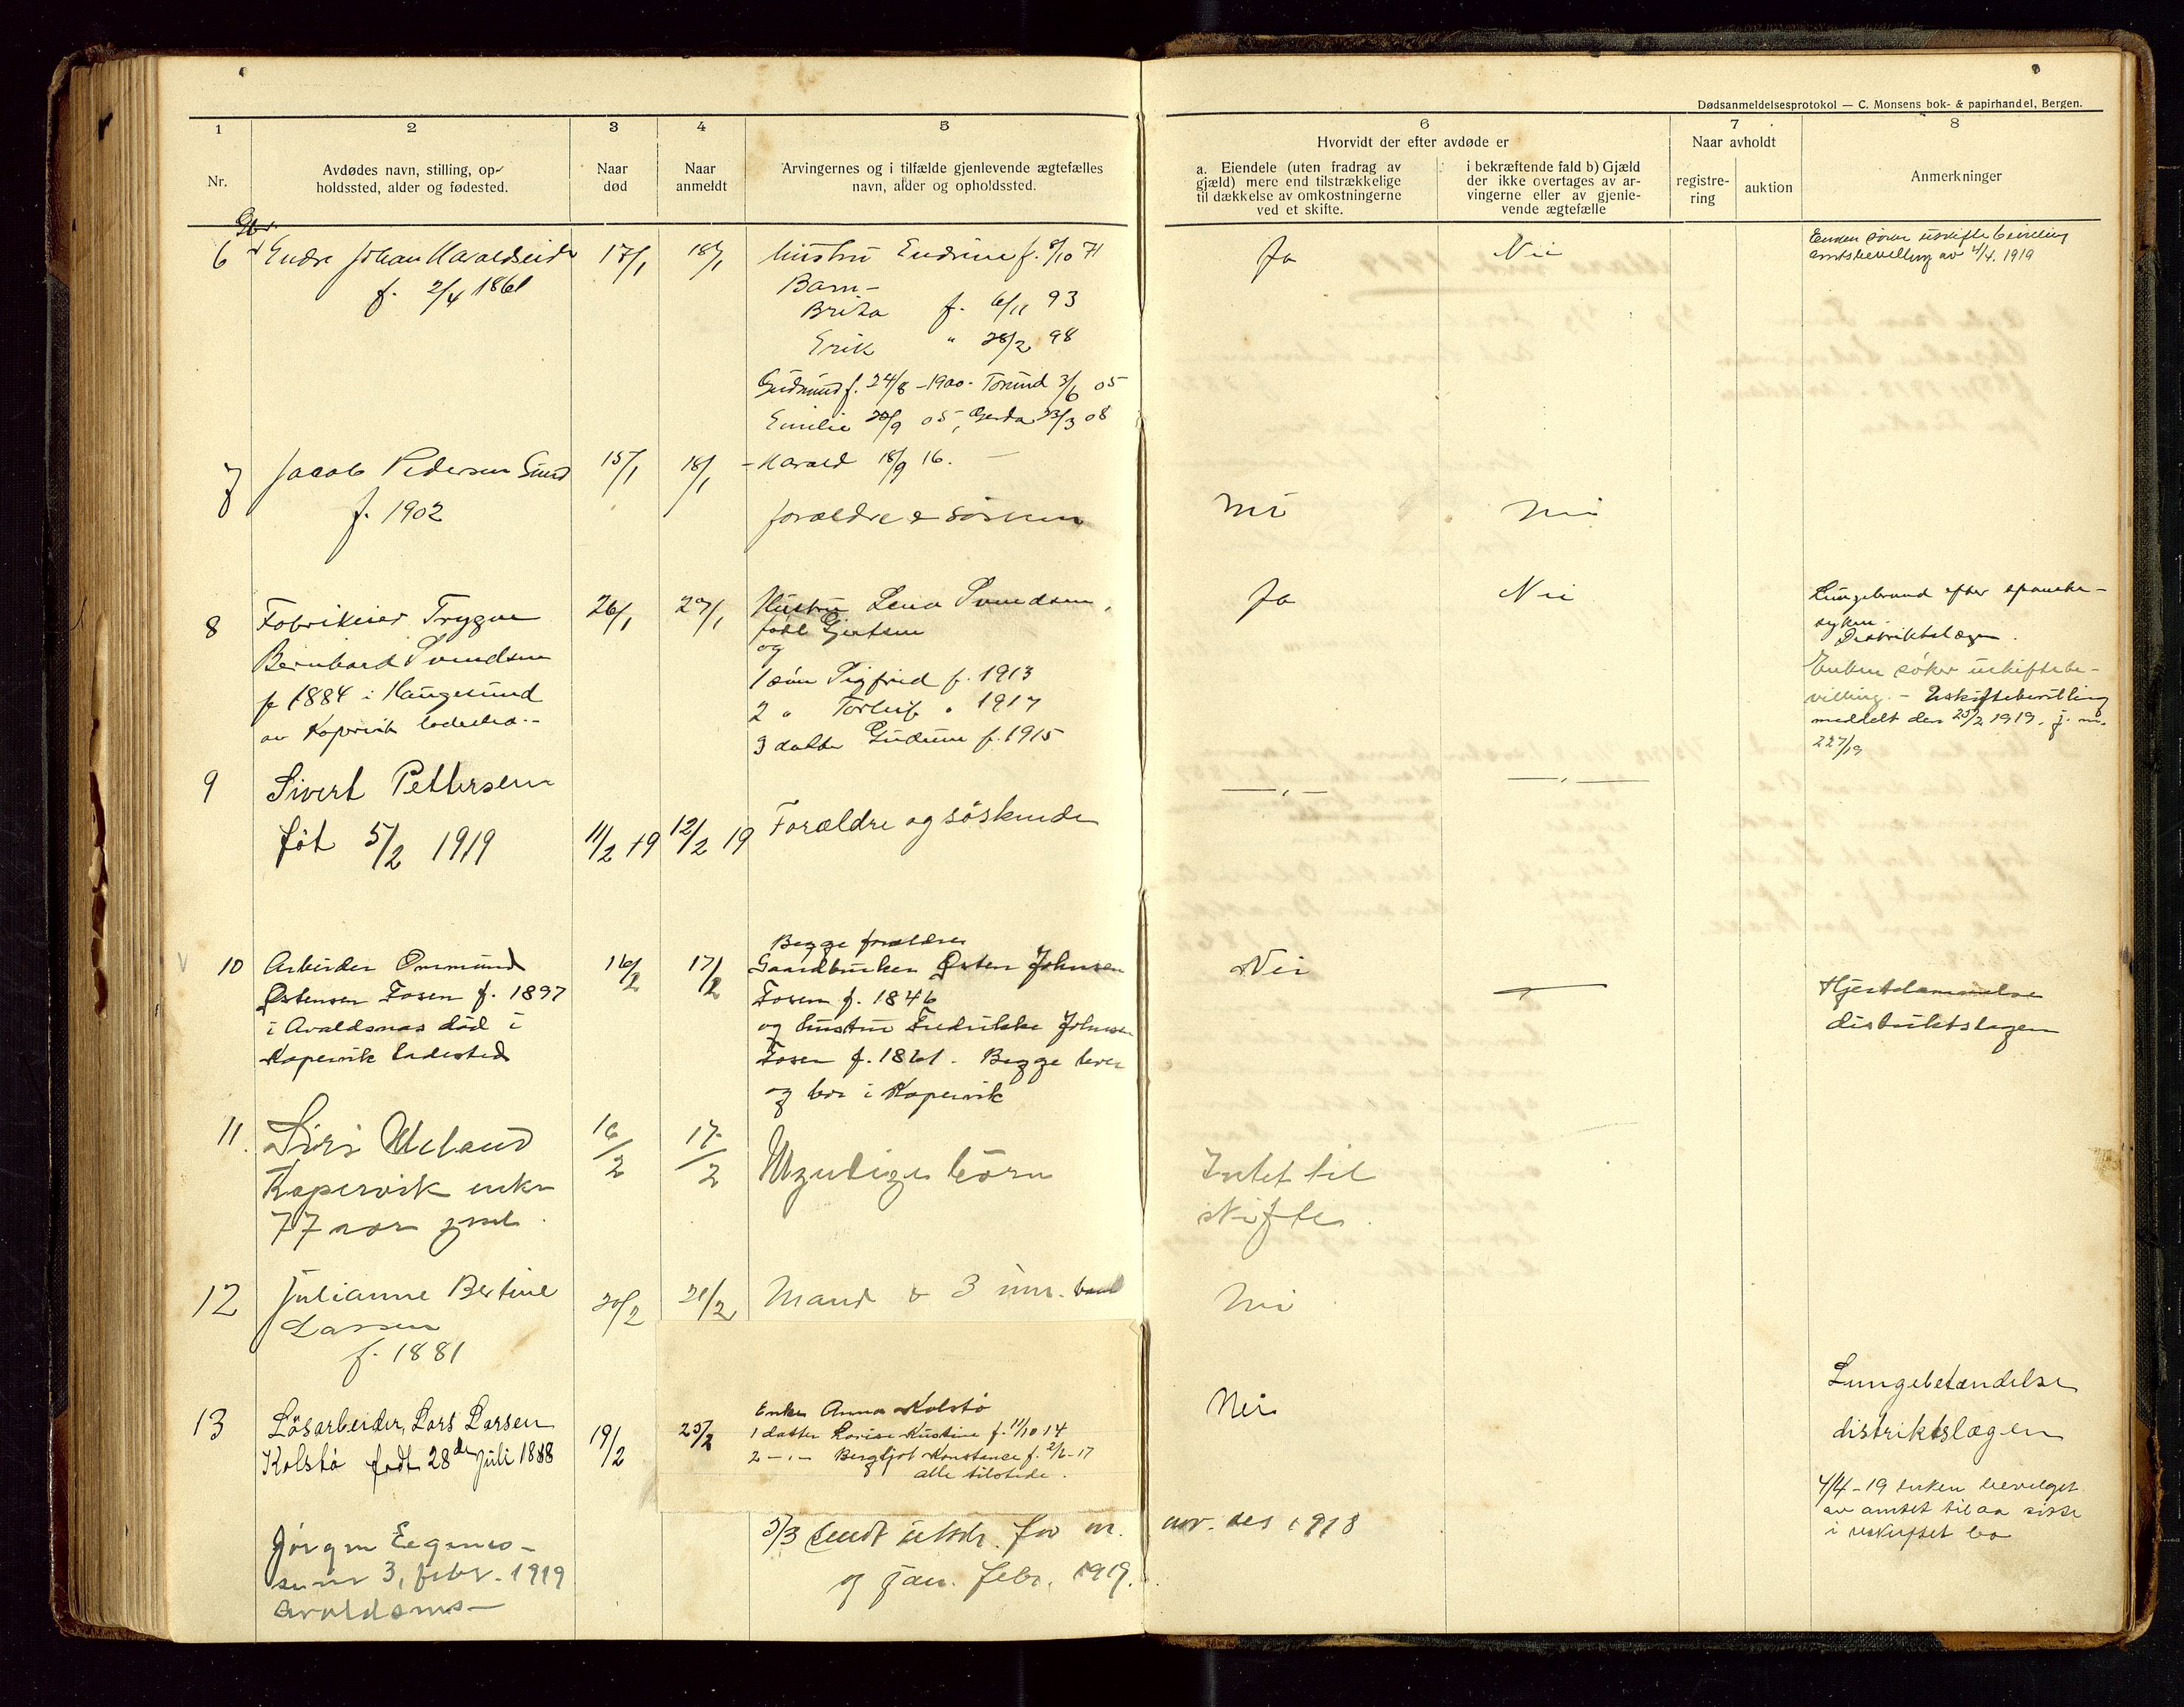 Dødsanmeldelsesprotokol — C. Monsens bok- & papirhandel, Bergen.
1
2
3
4
5
6
7
8
Nr.
Avdødes navn, stilling, op-
holdssted, alder og fødested.
Naar
død
Naar
anmeldt
Arvingernes og i tilfælde gjenlevende ægtefælles
navn, alder og opholdssted.
Hvorvidt der efter avdøde er
a. Eiendele (uten fradrag av
gjæld) mere end tilstrækkelige
til dækkelse av omkostningerne
ved et skifte.
i bekræftende fald b) Gjæld
der ikke overtages av ar-
vingerne eller av gjenle-
vende ægtefælle
Naar avholdt
registre-
ring
auktion
Anmerkninger
6 Endre Johan Haraldseid 17/1 18/1 hustru Endrine f. 8/10 71 Ja Nei
f. 2/4 1861
Barn
Brita f. 6/11 93
Erik " 28/2 98
Gudmund f. 24/8 - 1900 - Torund 3/6 05
Emilie 20/9 05, Gerda 23/3 08
Harald 18/9 16.
Enken uskiftebevilling
amtsbevilling av 4/4. 1919
7 Jacob Pedersen Sund 15/1 18/1
f. 1902 forældre & søsken Nei Nei
8 Fabrikeier Trygve 26/1 27/1 Hustru Lena Svendsen, Ja Nei
født Gjertsen
Bernhard Svendsen og
f 1884 i Haugesund 1 søn Sigfred f. 1913
av Kopervik ladested 2 " Torleif " 1917
3 datter Gudrun f. 1915
Lungebrand efter spanske-
syken.
Distriktslægen.
Enken søker uskiftebe-
villing. - Uskiftebevilling
meddelt den 25/2 1919, j. nr.
227/19
9 Sivert Pettersen
føt 5/2 1919 11/2 19 12/2 19 Forældre og søskende
10 Arbeider Ommund 16/2 17/2 Begge forældre
Østensen Fosen f. 1897
i Avaldsnes død i
Kopervik ladested
Gaardbruker Østen Johnsen
Fosen f. 1846
og hustru Fredrikke Johnsen
Fosen f. 1861. Begge lever
og bor i Kopervik
Nei —
Hjertelammelse
distriktslægen
11. Siri Meland 16/2 17/2 Myndige børn Intet til
Kopervik enke skifte
77 aar gml.
12 Julianne Bertine 20/2 21/2 Mand & 3 um. barn Nei
Larsen
f. 1881
13 Løsarbeider, Lars Larsen 19/2 25/2 Enke Anna Kolstø Nei
Kolstø født 28de juli 1888
1 datter Lovise Kristine f. 11/10 14
2 -"- Bergljot Konstanse f. 2/6-17
alle tilstede.
Lungebetændelse
distriktslægen
4/4-19 enken bevilget
av amtet til aa sitte
i uskiftet bo
5/3 sendt utskr. for nov. des 1918
og jan. febr. 1919.
Jørgen
3, febr. 1919
Avaldsnes